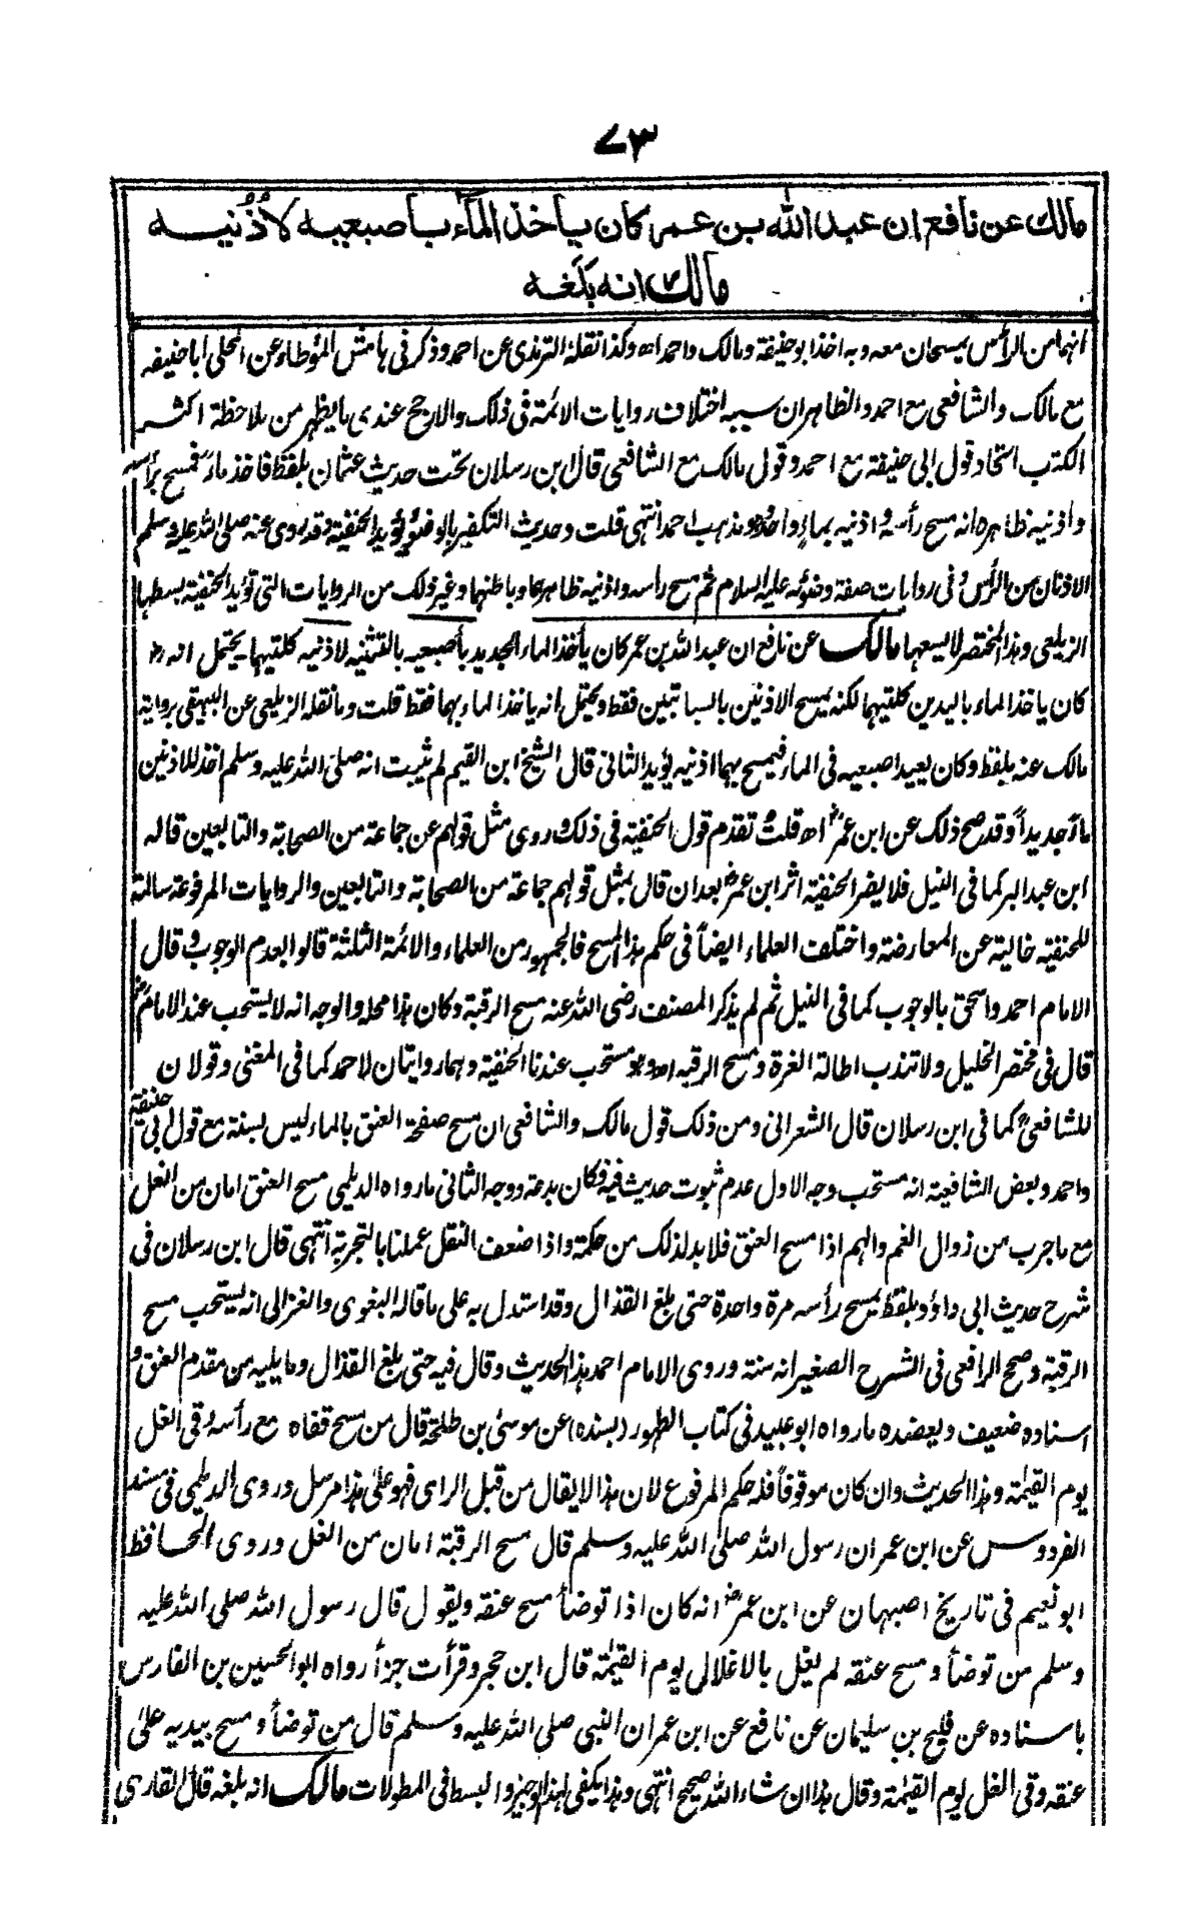 ٧٣
مالك عن نافع ان عبد الله بن عمر كان يأخذ الماء بأصبعيه لأذنيه
مالك انه بلغه
انهما من الرأس يمسحان معه وبه اخذ ابو حنيفة ومالك واحمد اه وكذا نقله الترمذى عن احمد وذكر فى هامش المؤطاء عن المحلى ابا حنيفه
مع مالك والشافعى مع احمد والظاهر ان سببه اختلاف روايات الائمة فى ذلك والارجح عندى ما يظهر من ملاحظة اكثر
الكتب اتحاد قول ابى حنيفة مع احمد وقول مالك مع الشافعى قال ابن رسلان تحت حديث عثمان بلفظ فاخذ ماءً فمسح برأسه
واذنيه ظاهره انه مسح رأسه واذنيه بماء واحد وهو مذهب احمد انتهى قلت وحديث التكفير بالوضوء يؤيد الحنفية وقد روى عنه صلى الله عليه وسلم
الاذنان من الرأس وفى روايات صفة وضوئه عليه السلام ثم مسح راسه واذنيه ظاهرهما وباطنهما وغير ذلك من الروايات التى تؤيد الحنفية بسطها
الزيلعى وهذا المختصر لا يسعها مالك عن نافع ان عبد الله بن عمر كان يأخذ الماء الجديد بأصبعيه بالتثنيه لاذنيه كلتيهما يحتمل انه رض
كان ياخذ الماء باليدين كلتيهما لكنه يمسح الاذنين بالسباتبين فقط ويحتمل انه ياخذ الماء بهما فقط قلت وما نقله الزيلعى عن البيهقى برواية
مالك عنه بلفظ وكان يعيد اصبعيه فى الماء فيمسح بهما اذنيه يؤيد الثانى قال الشيخ ابن القيم لم يثبت انه صلى الله عليه وسلم اخذ للاذنين
ماءً جديداً وقد صح ذلك عن ابن عمر رض اه قلت وتقدم قول الحنفية فى ذلك وروى مثل قولهم عن جماعة من الصحابة والتابعين قاله
ابن عبد البر كما فى النيل فلا يضر الحنفية اثر ابن عمر رض بعد ان قال بمثل قولهم جماعة من الصحابة والتابعين والروايات المرفوعة سالمة
للحنفية خالية عن المعارضة واختلف العلماء ايضاً فى حكم هذا المسح فالجمهور من العلماء والائمة الثلثة قالوا بعدم الوجوب وقال
الامام احمد واسحق بالوجوب كما فى النيل ثم لم يذكر المصنف رضى الله عنه مسح الرقبة وكان هذا محله والوجه انه لا يستحب عند الامام رض
قال فى مختصر الخليل ولا تندب اطالة الغرة ومسح الرقبه اه وهو مستحب عندنا الحنفية وهما روايتان لاحمد كما فى المغنى وقولان
للشافعى كما فى ابن رسلان قال الشعرانى ومن ذلك قول مالك والشافعى ان مسح صفحة العنق بالماء ليس بسنة مع قول ابى حنيفة
واحمد وبعض الشافعية انه مستحب وجه الاول عدم ثبوت حديث فيه فكان بدعة ووجه الثانى ما رواه الديلمى مسح العنق امان من الغل
مع ماجرب من زوال الغم والهم اذا مسح العنق فلا بد لذلك من حكمة واذا ضعف النقل عملنا بالتجربة انتهى قال ابن رسلان فى
شرح حديث ابى داؤد بلفظ يمسح رأسه مرة واحدة حتى بلغ القذال وقد استدل به على ما قاله البغوى والغزالى انه يستحب مسح
الرقبة وصحح الرافعى فى الشرح الصغير انه سنة وروى الامام احمد هذا الحديث وقال فيه حتى بلغ القذال وما يليه من مقدم العنق و
اسناده ضعيف ويعضده ما رواه ابو عبيد فى كتاب الطهور (بسنده) عن موسى بن طلحة قال من مسح قفاه مع رأسه وقى الغل
يوم القيمة وهذا الحديث وان كان موقوفاً فله حكم المرفوع لان هذا لا يقال من قبل الراى فهو على هذا مرسل وروى الديلمى فى مسند
الفردوس عن ابن عمر ان رسول الله صلى الله عليه وسلم قال مسح الرقبة امان من الغل وروى الحافظ
ابو نعيم فى تاريخ اصبهان عن ابن عمر رض انه كان اذا توضأ مسح عنقه ويقول قال رسول الله صلى الله عليه
وسلم من توضأ ومسح عنقه لم يغل بالاغلال يوم القيمة قال ابن حجر وقرأت جزأ رواه ابو الحسين بن الفارس
باسناده عن فليح بن سليمان عن نافع عن ابن عمر ان النبى صلى الله عليه وسلم قال من توضأ ومسح بيديه على
عنقه وقى الغل يوم القيمة وقال هذا ان شاء الله صحيح انتهى وهذا يكفى لهذا الوجيز والبسط فى المطولات مالك انه بلغه قال القارى